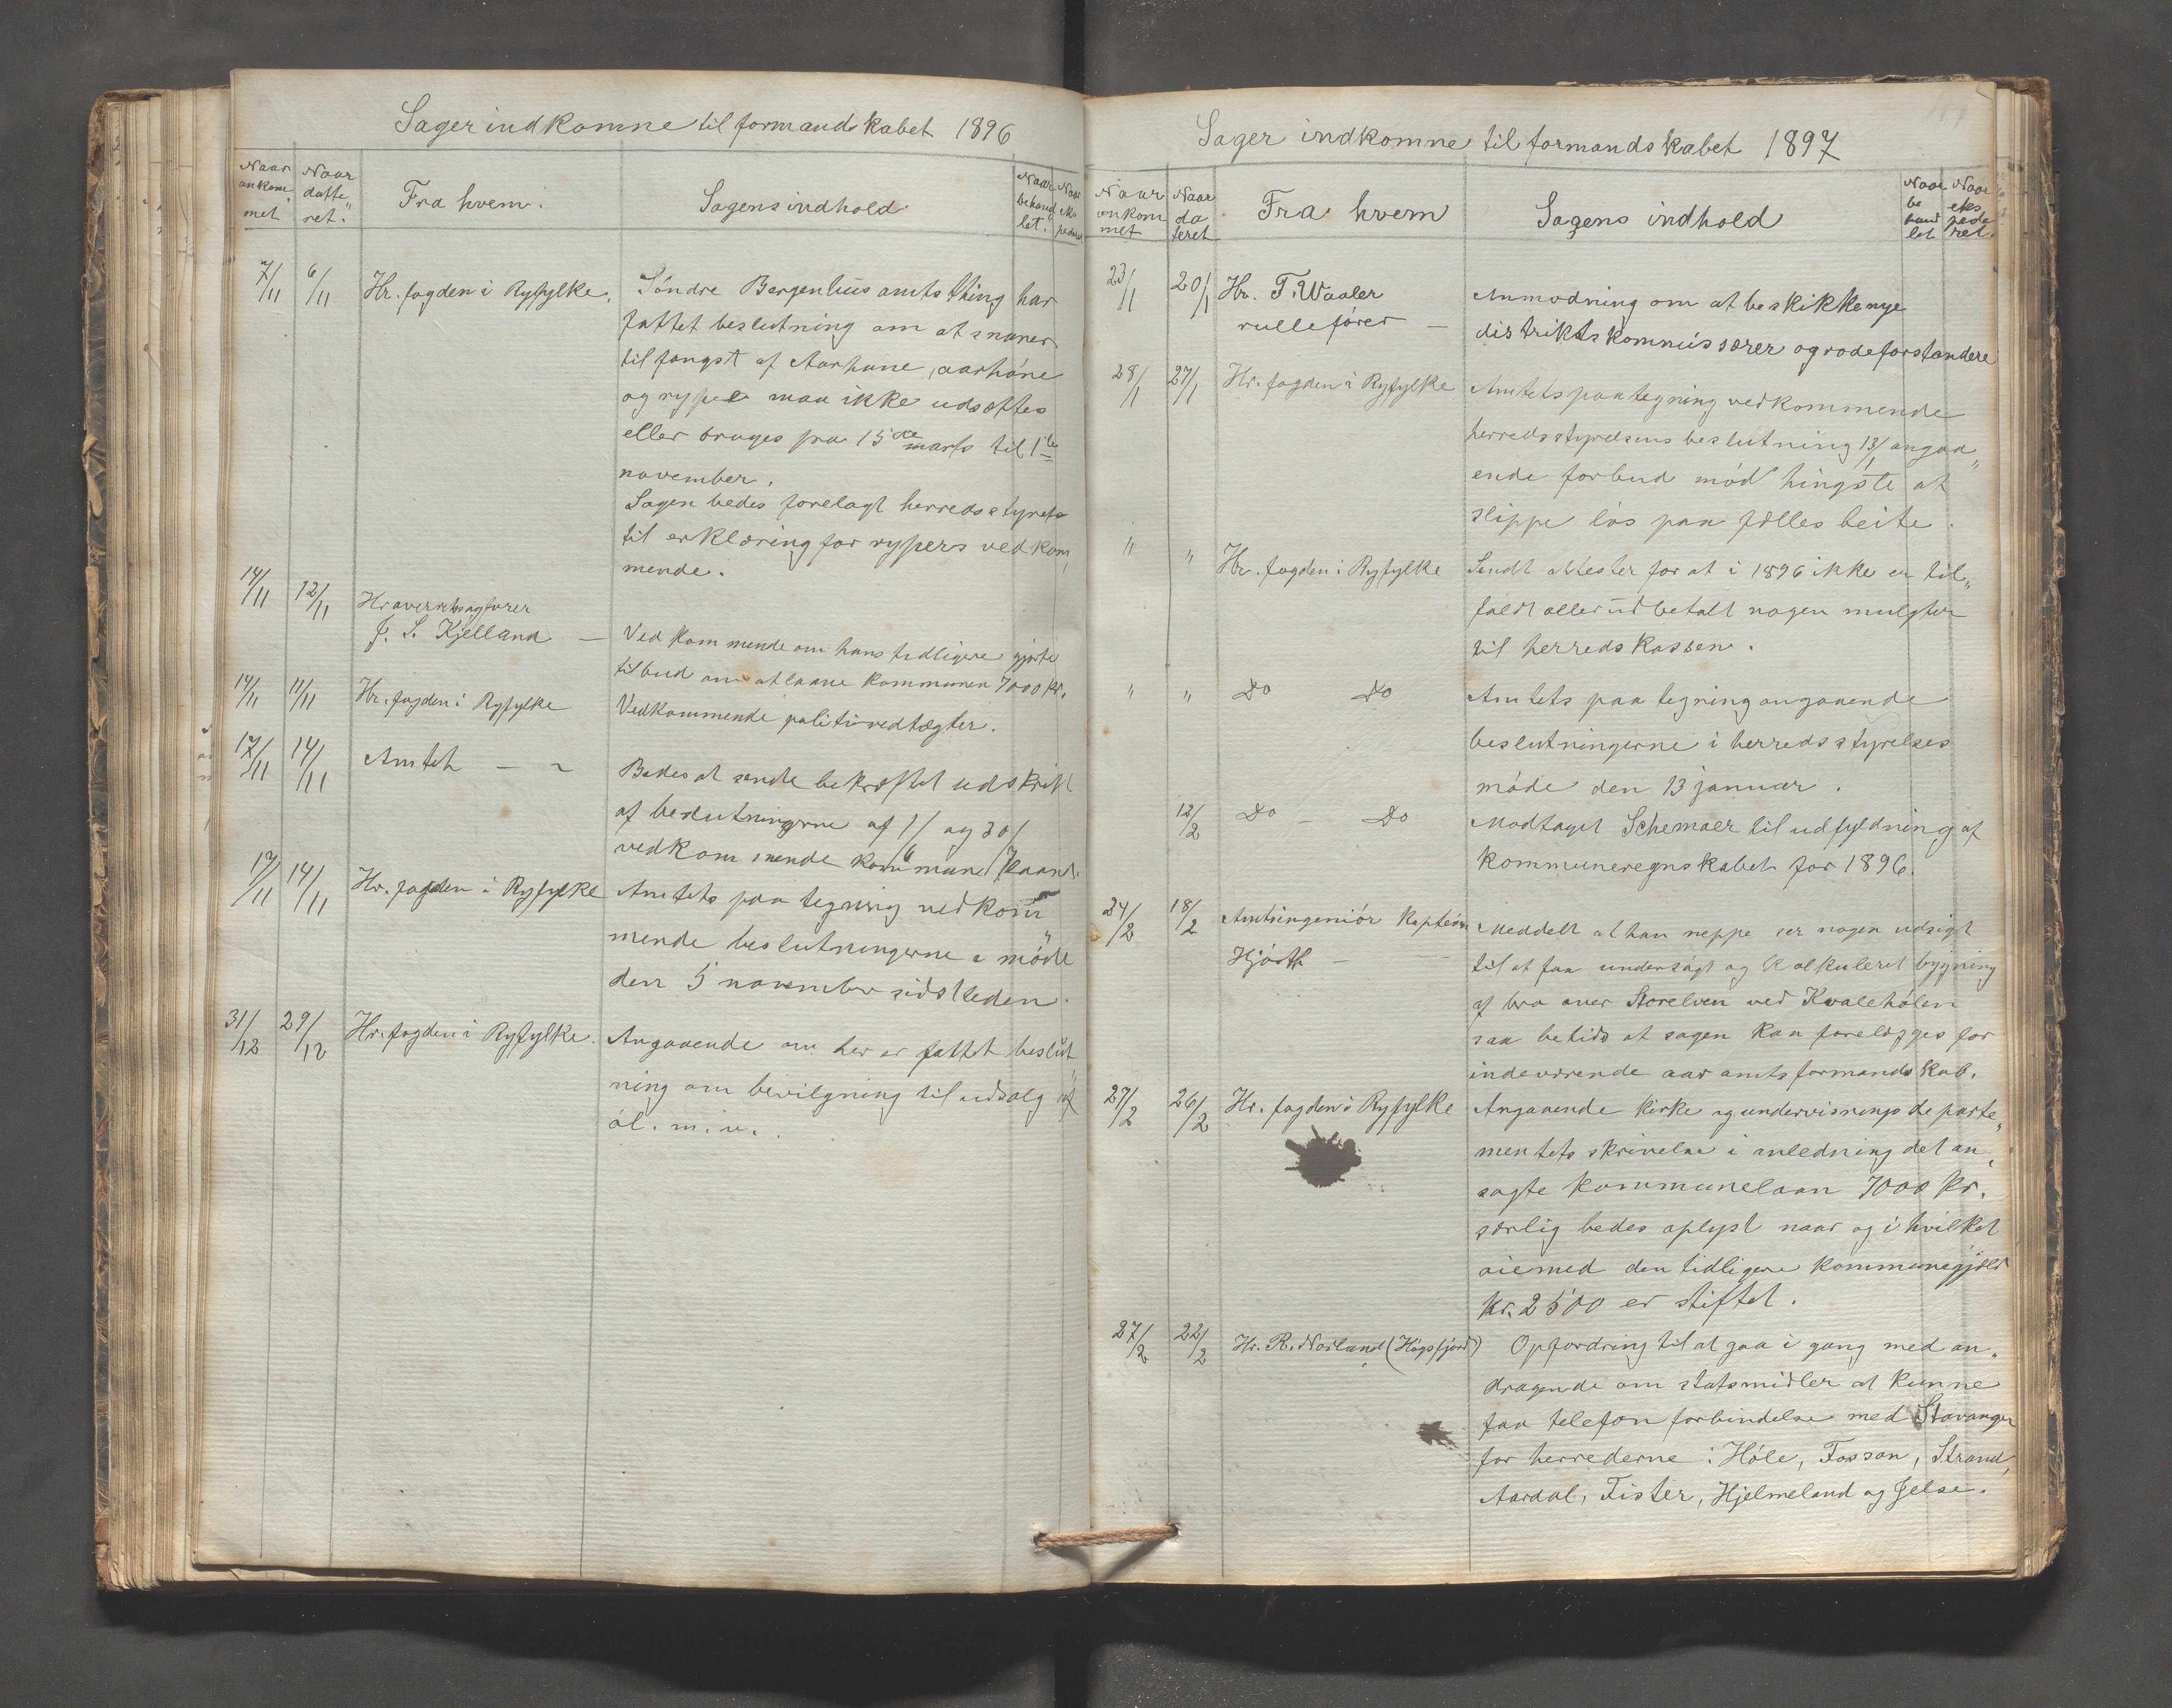 Sager indkomne til formandskabet 1896
Naar ankom„ met
Naar datte„ ret.
Fra hvem.
Sagens indhold
Naar behand„ let.
Naar
7/11 6/11 Hr. fogden i Ryfylke. Söndre Bergenhus amts thing har
fattet beslutning om at snarer
til fangst af Aarhane, aarhöne
og ryper maa ikke udsættes
eller bruges fra 15de marts til 1te
november.
Sagen bedes forelagt herredsstyret
til erklæring for rypers vedkom„
mende.
14/11 12/11 Hr overretssagförer
J. S. Kjelland — Vedkommende om hans tidligere gjorte
tilbud om at laane kommunen 7000 kr.
14/11 11/11 Hr. fogden i Ryfylke Vedkommende politivedtægter.
17/11 14/11 Amtet — ~ Bedes at sende bekræftet udskrift
af beslutningerne af 1/6 og 30/7
vedkommende kommunelaanet.
17/11 14/11 Hr. fogden i Ryfylke Amtets paategning vedkom„
mende beslutningerne i möde
den 5 november sidstleden.
31/12 29/12 Hr. fogden i Ryfylke. Angaaende om her er fattet beslut„
ning om bevilgning til udsalg af
öl. m. v.
Sager indkomne til formandskabet 1897
Naar ankom met
Naar da teret
Fra hvem
Sagens indhold
Naar be hand let
Naar eks pede ret.
23/1 20/1 Hr. T. Waaler Anmodning om at beskikke nye
rulleförer — distriktskommissærer og rodeforstandere
28/1 27/1 Hr. fogden i Ryfylke Amtets paategning vedkommende
herredsstyrelsens beslutning 13/1 angaa„
ende forbud mod hingste at
slippe lös paa fælles beite.
" " Hr. fogden i Ryfylke Sendt attester for at i 1896 ikke er til„
faldt eller udbetalt nogen mulgter
til herredskassen.
" " Do Do Amtets paategning angaaende
beslutningerne i herredsstyrelses
möde den 13 januar.
12/2 Do — Do Modtaget Schemaer til udfyldning af
kommuneregnskabet for 1896.
24/2 18/2 Amtsingeniör Kaptein Meddelt at han neppe ser nogen udsigt
Hjorth — — til at faa undersögt og kalkuleret bygning
af bro over Storelven ved Kvalehölen
saa betids at sagen kan forelægges for
indeværende aar amtsformandskab.
27/2 26/2 Hr. fogden i Ryfylke Angaaende kirke og undervisningsdeparte„
mentets skrivelse i anledning det an„
sögte kommunelaan 7000 kr.
særlig bedes oplyst naar og i hvilket
öiemed den tidligere kommunegjæld
kr. 2500 er stiftet.
27/2 22/2 Hr. R. Norland (Högsfjord) Opfordring til at gaa i gang med an„
dragende om statsmidler at kunne
faa telefonforbindelse med Stavanger
for herrederne: Höle, Fossan, Strand,
Aardal, Fister, Hjelmeland og Jelse.